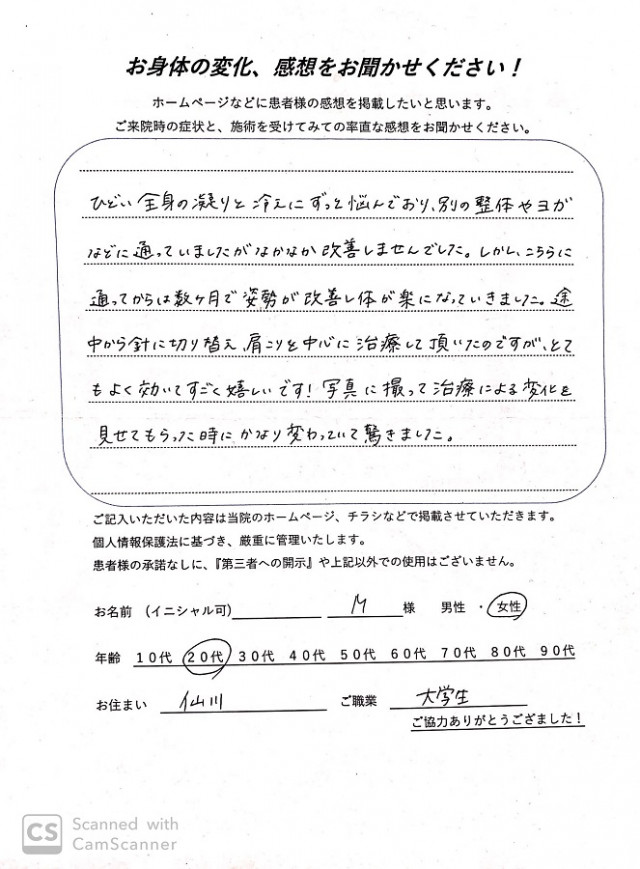 お身体の変化、感想をお聞かせください！
ホームページなどに患者様の感想を掲載したいと思います。
ご来院時の症状と、施術を受けてみての率直な感想をお聞かせください。
ひどい全身の凝りと冷えにずっと悩んでおり、別の整体やヨガ
などに通っていましたがなかなか改善しませんでした。しかし、こちらに
通ってからは数ヶ月で姿勢が改善し体が楽になっていきました。途
中から針に切り替え、肩こりを中心に治療して頂いたのですが、とて
もよく効いてすごく嬉しいです！写真に撮って治療による変化を
見せてもらった時にかなり変わっていて驚きました。
ご記入いただいた内容は当院のホームページ、チラシなどで掲載させていただきます。
個人情報保護法に基づき、厳重に管理いたします。
患者様の承諾なしに、『第三者への開示』や上記以外での使用はございません。
お名前 （イニシャル可） M 様 男性 ・ 女性
年齢 10代 20代 30代 40代 50代 60代 70代 80代 90代
お住まい 仙川 ご職業 大学生
ご協力ありがとうござました！
CS Scanned with
CamScanner